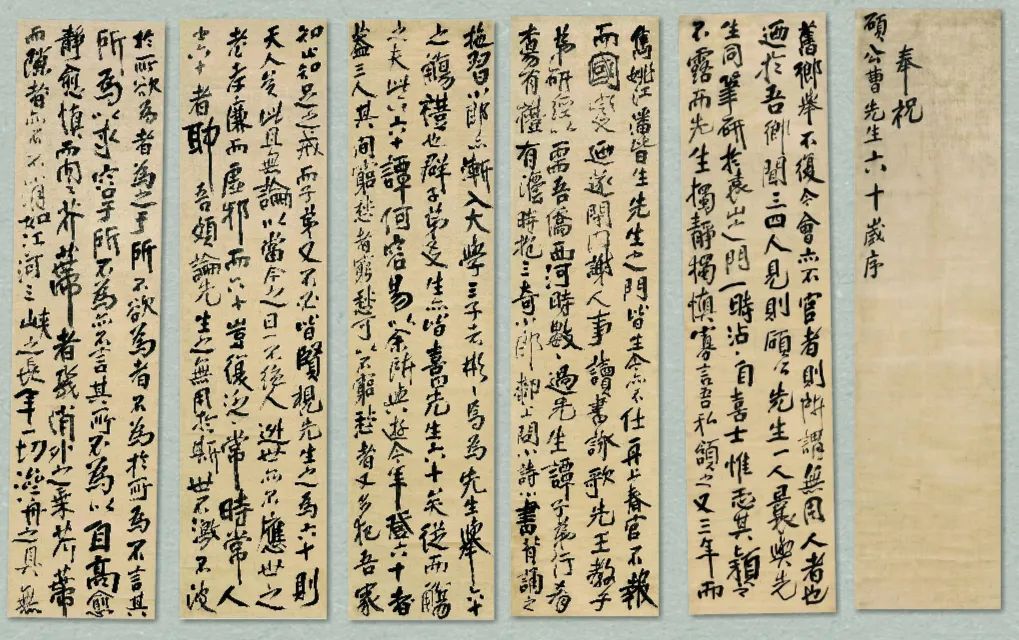 奉祝
碩公曹先生六十歲序
舊鄉舉不復令會六不官者則所謂無用人者也
迺於吾鄉聞三四人見則碩公先生一人最與先
生同筆研於袁出之門一時沾沾自喜士惟恐其穎之
不露而先生獨靜獨慎寡言吾私領之又三年而
雋姚江潘皆生先生之門皆生令亦不仕再上春官不報
而國變迺遂閉門謝人事讀書詠歌先王教子
弟研經以需吾僑西河時數數過先生譚子弟行肴
觴有禮有灋時抱三奇小郎上問小詩小書皆誦之
拖習小郎亦漸入大學三子者彬彬焉為先生舉六十
之觴禮也群子弟友生亦皆喜先生六十矣從而觴
之夫此六六十譚何容易以余所與遊今年登六十者
蓋三人其間窮愁者窮愁可以不窮愁者又多犯吾家
知止知足之戒而子弟又不必皆賢視先生之為六十則
天人矣此且無論以當今之日一不徇人逃世亦不應世之
老孝廉而虛邪而六十豈復泛泛常時常人
之六十者耶吾頗論先生之無用於斯世不激不波
於所欲為者為之于所不欲為者不為於所為不言其
所為以求容于所不為亦不言其所不為以自高愈
靜愈慎而胸之芥蔕者幾消外之乘芥蔕
而隙者亦不消如江河三峽之長年一切濟舟之具無